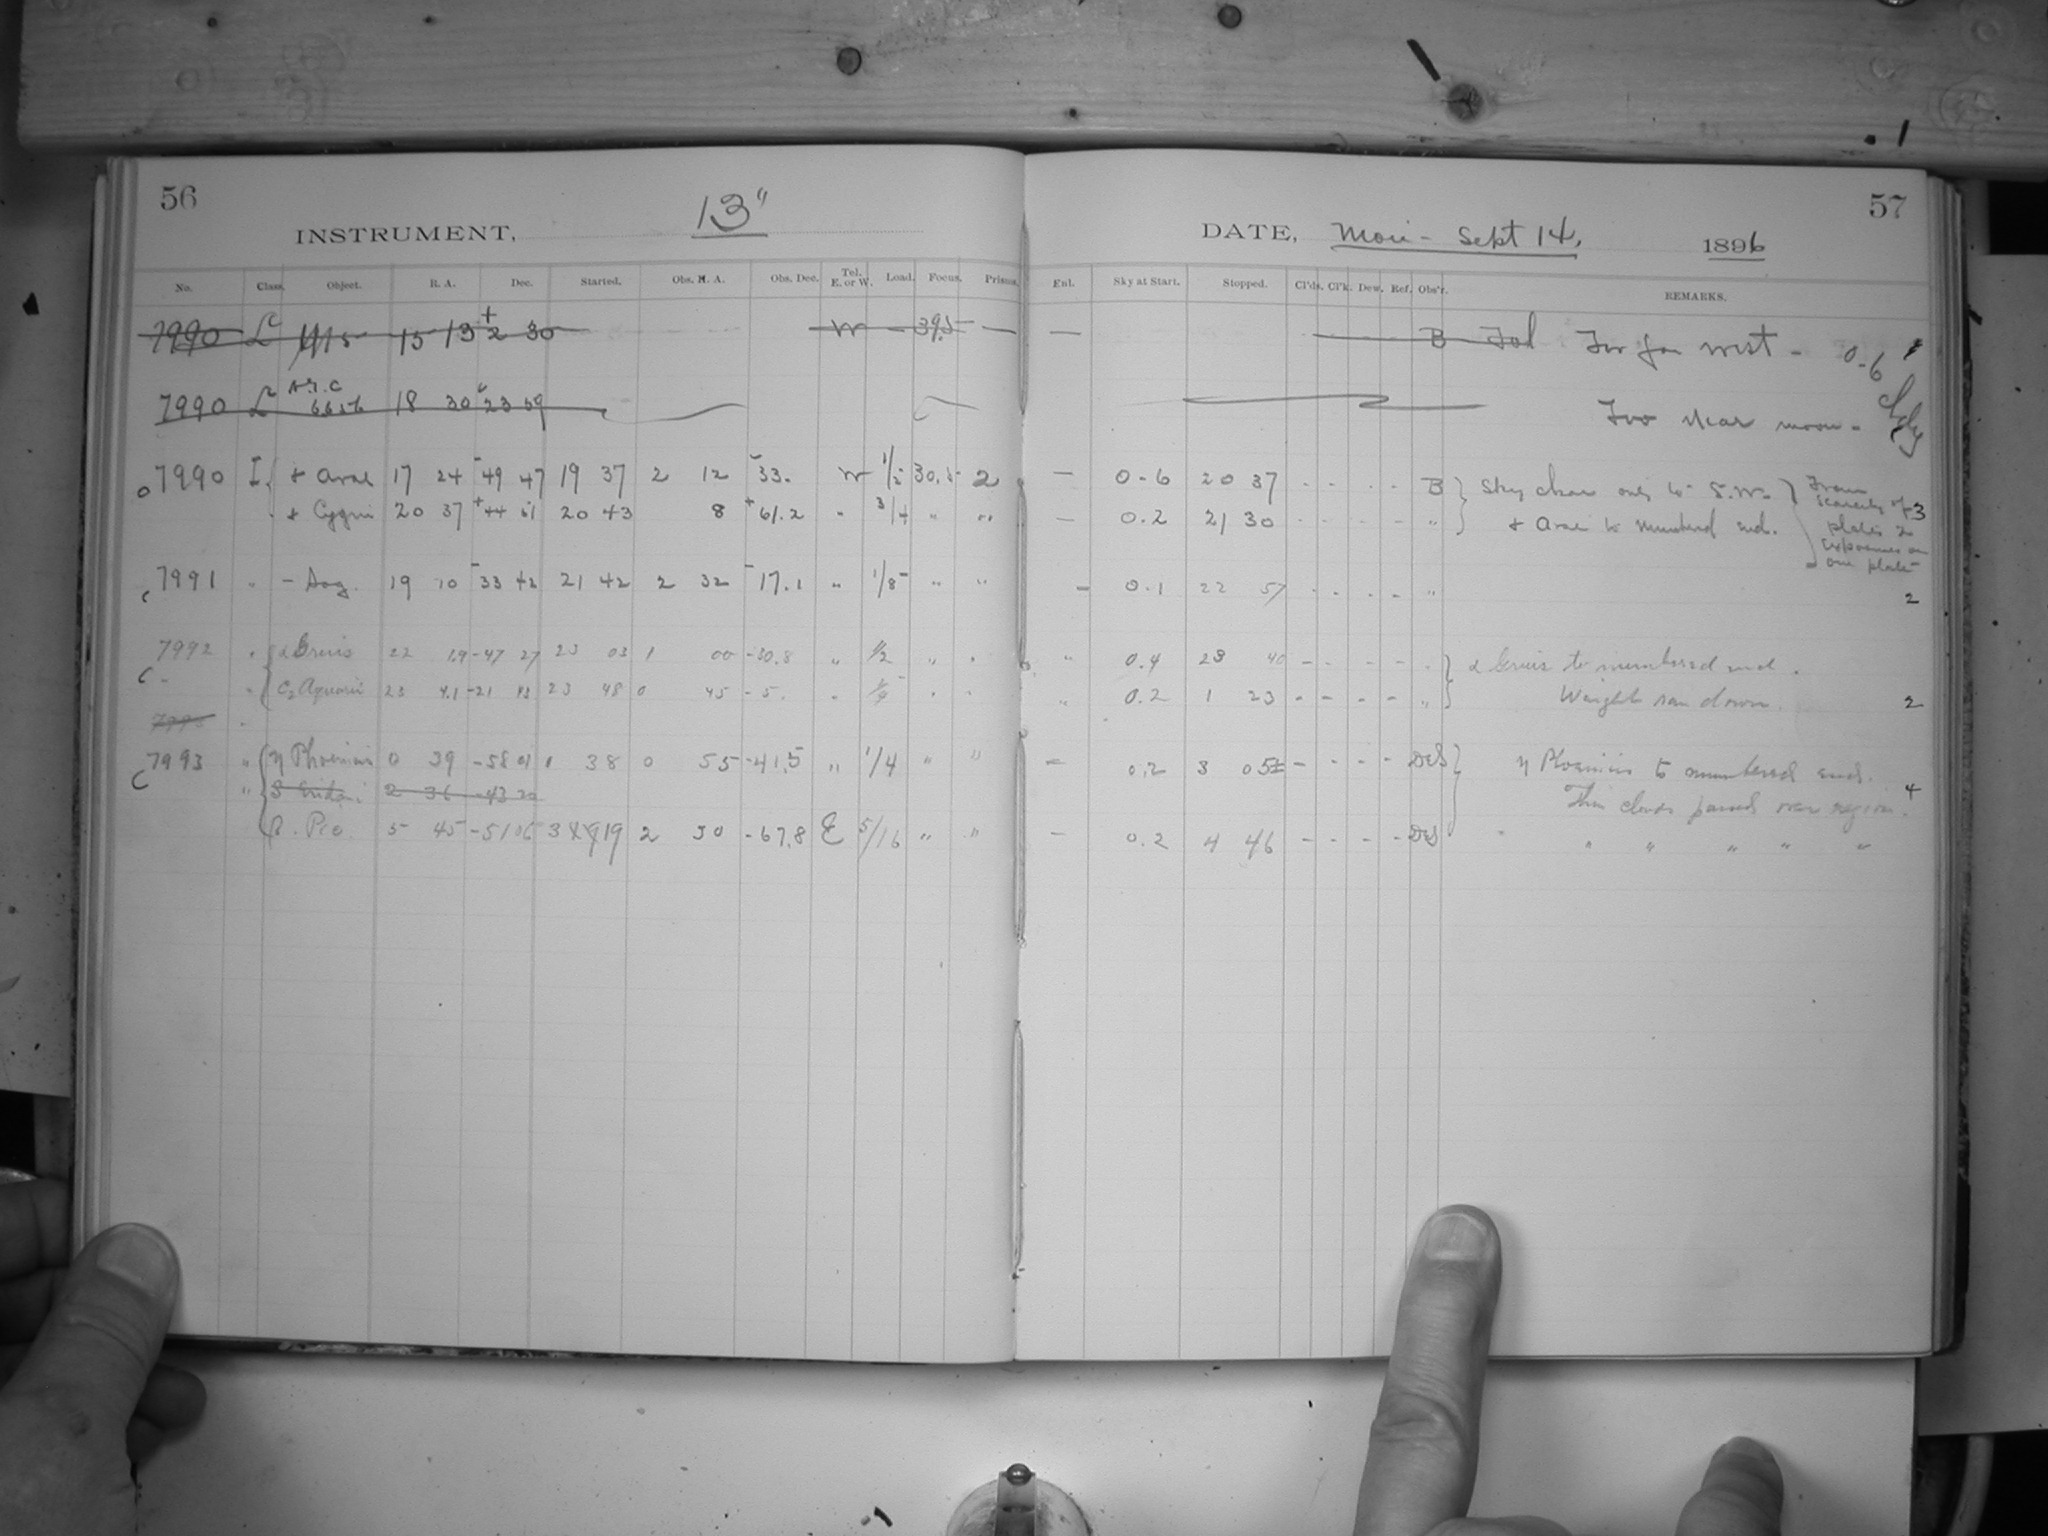 56
INSTRUMENT, 13"
No. Class. Object. R. A. Dec. Started. Obs. H. A. Obs. Dec. Tel. E. or W. Load. Focus. Prisms.
7990 L M5 15 13 + 2 30 W - 39.5 —
7990 L N.G.C 6656 18 30 23 59
o 7990 I { α Arae 17 24 - 49 47 19 37 2 12 - 33. W 1/2 30.5 2
α Cygni 20 37 + 44 51 20 43 8 + 61.2 " 3/4 " "
c 7991 " - Sag. 19 10 - 33 42 21 42 2 32 - 17.1 " 1/8 " "
c 7992 " { α Gruis 22 1.9 -47 27 23 03 1 00 -30.8 " 1/2 " "
" c2 Aquarii 23 4.1 -21 43 23 48 0 45 - 5. "
c 7993 " { η Phoenicis 0 39 -58 01 1 38 0 55 -41.5 " 1/4 " "
" 2 36 -43 20
Pic. 5 45 -51 06 3 19 2 30 -67.8 E 5/16 " "
57
DATE, Mon - Sept 14, 1896
Enl. Sky at Start. Stopped. Cl'ds. Cl'k. Dew. Ref. Obs'r. REMARKS.
— B Too far west - 0-6
Too near moon - cldy
— 0-6 20 37 - - - - B } Sky clear only to S.W. } From scarcity of 3
— 0.2 21 30 - - - - " α Arae to numbered end. plates 2
exposures on
one plate
— 0.1 22 57 - - - - " 2
" 0.4 23 40 - - - - " } α Gruis to numbered end.
" 0.2 1 23 - - - - " Weight ran down. 2
— 0.2 3 05 - - - - DeS } η Phoenicis to numbered end.
Thin clouds passed over region. 4
— 0.2 4 46 - - - - DeS " " " " "